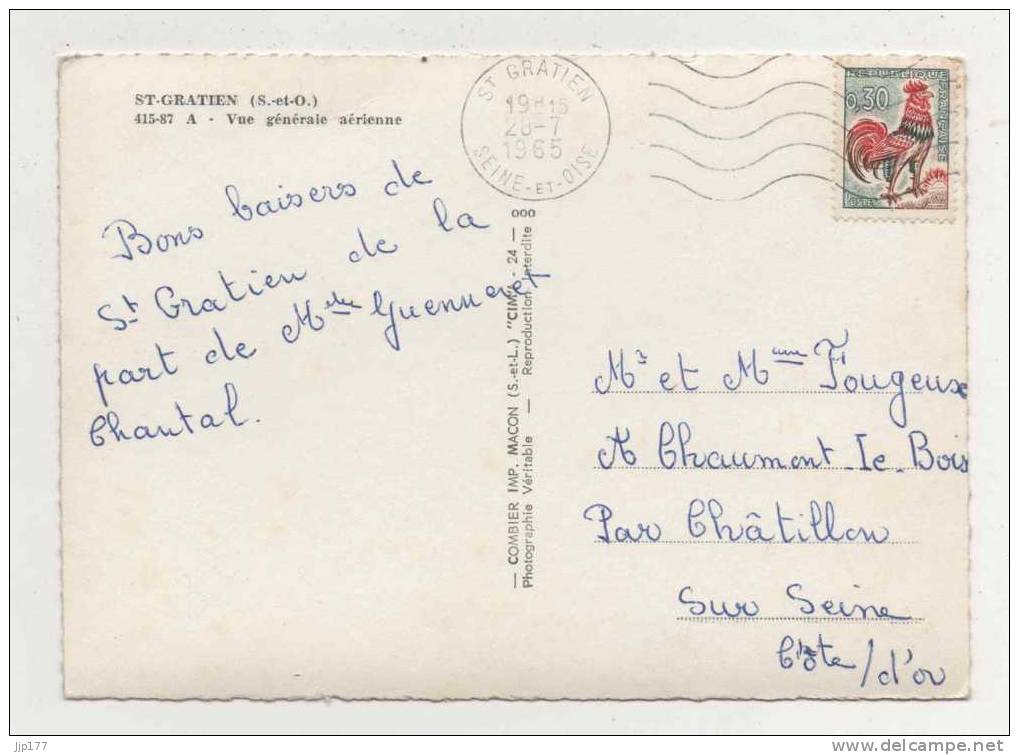 ST-GRATIEN (S.-et-O.)
415-87 A - Vue générale aérienne
Bons baisers de
St Gratien de la
part de Melle Guennevet
Chantal.
ST GRATIEN
19H15
28-7
1965
SEINE-ET-OISE
REPUBLIQUE FRANÇAISE
0,30
POSTES
— COMBIER IMP. MACON (S.-et-L.) "CIM" - 24 — 000
Photographie Véritable — Reproduction Interdite
Mr et Mme Fougeux
A Chaumont-Le-Bois
Par Châtillon
Sur Seine
Côte/d'or
jjp177
www.delcampe.net